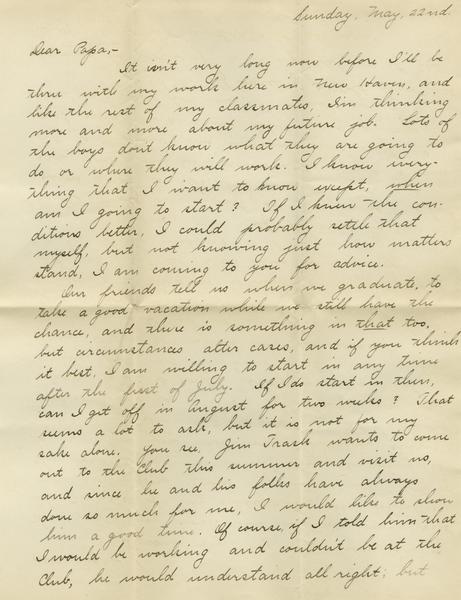 Sunday, May, 22nd.
Dear Papa,-
It isn't very long now before I'll be
thru with my work here in New Haven, and
like the rest of my classmates, I'm thinking
more and more about my future job. Lots of
the boys don't know what they are going to
do or where they will work. I know every-
thing that I want to know except, when
am I going to start? If I knew the con-
ditions better, I could probably settle that
myself, but not knowing just how matters
stand, I am coming to you for advice.
Our friends tell us when we graduate, to
take a good vacation while we still have the
chance, and there is something in that too,
but circumstances alter cases, and if you think
it best, I am willing to start in any time
after the first of July. If I do start in then,
can I get off in August for two weeks? That
seems a lot to ask, but it is not for my
sake alone. You see, Jim Trask wants to come
out to the Club this summer and visit us,
and since he and his folks have always
done so much for me, I would like to show
him a good time. Of course, if I told him that
I would be working and couldn't be at the
Club, he would understand all right; but